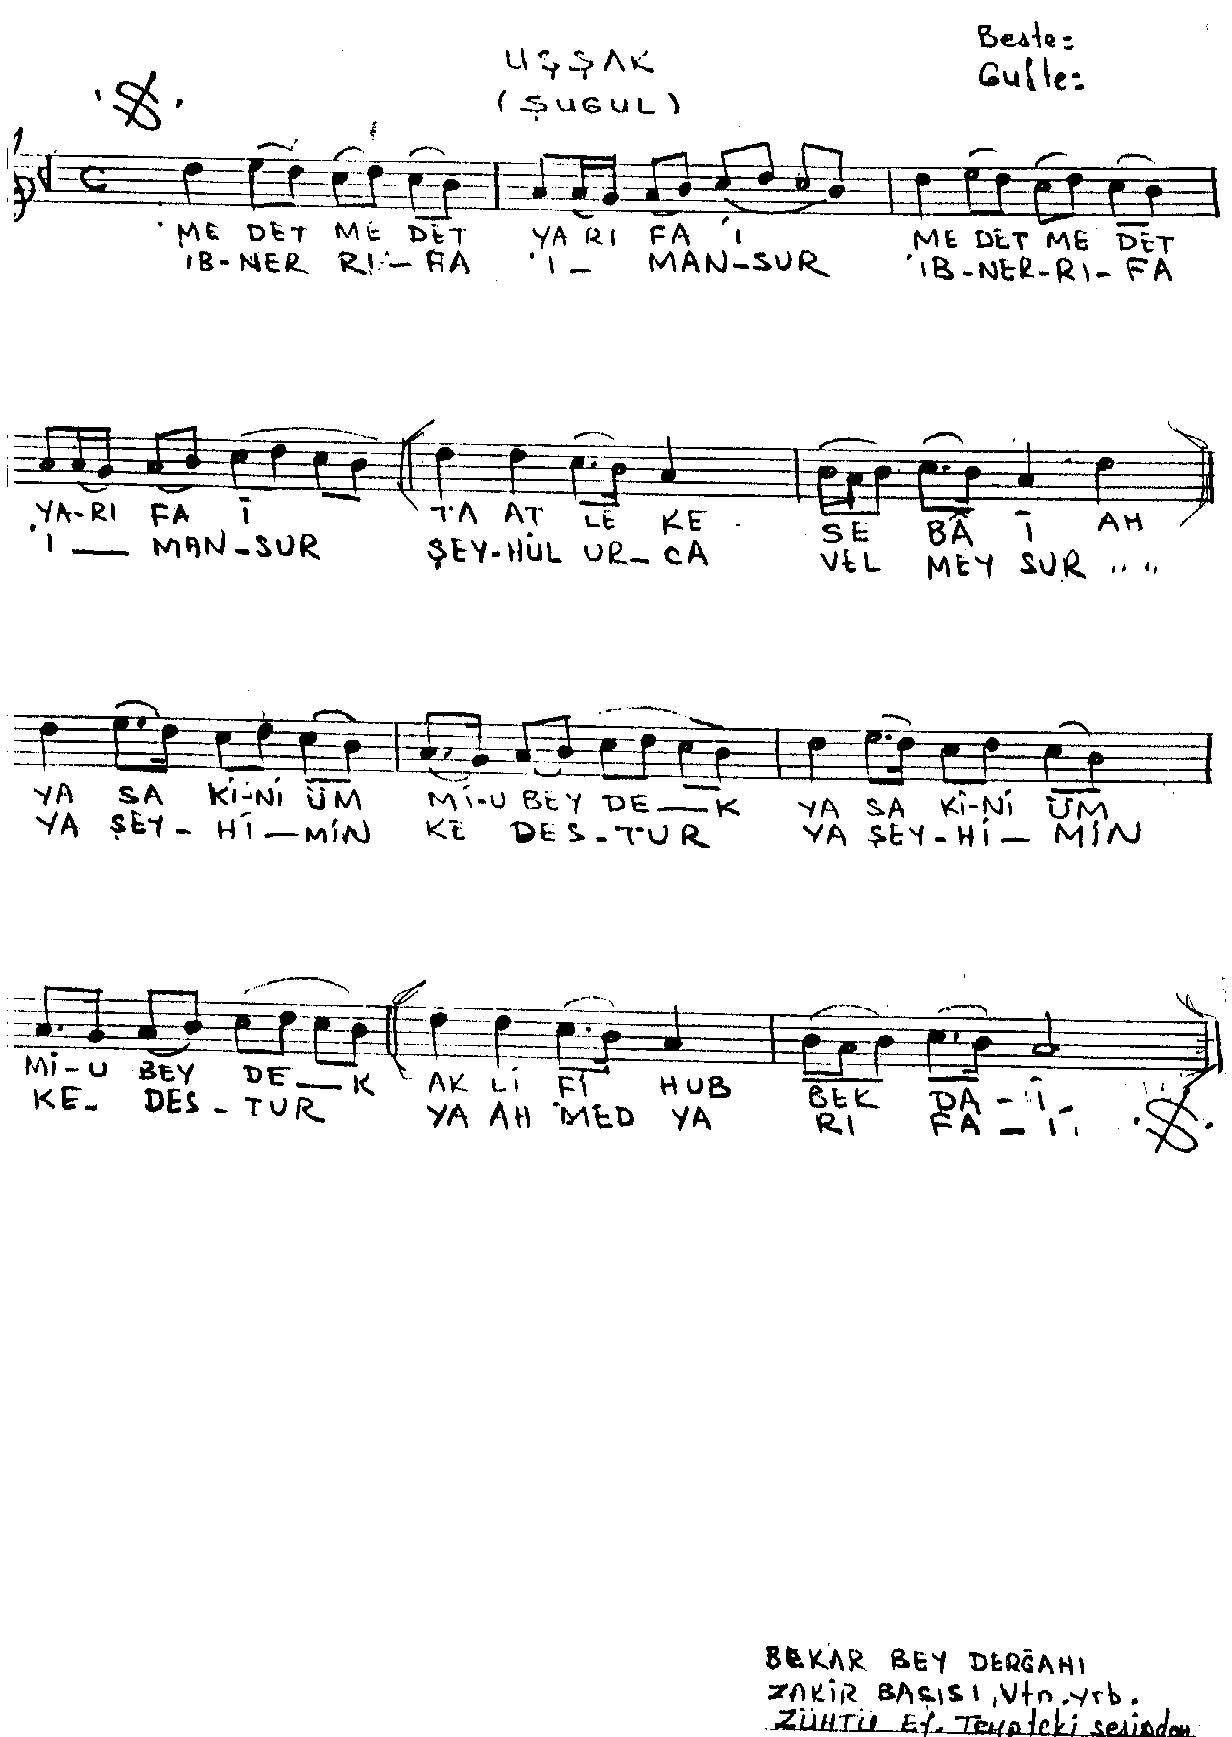 Beste:
UŞŞAK
Gufte:
(ŞUGUL)
C
ME DET ME DET YA RI FA 'I ME DET ME DET
'IB-NER RI-FA 'I- MAN-SUR 'IB-NER-RI-FA
YA-RI FA Î TA AT LE KE SE BÂ Î AH
'I — MAN-SUR ŞEY-HÜL UR-CA VEL MEY SUR " "
YA SA Kİ-Nİ ÜM Mİ-U BEY DE—K YA SA Kİ-Nİ ÜM
YA ŞEY-Hİ-MİN KE DES-TUR YA ŞEY-Hİ-MİN
Mİ-U BEY DE—K AK Lİ Fİ HUB BEK DA-Î-
KE- DES-TUR YA AH MED YA RI FA-Iİ
BEKAR BEY DERGAHI
ZAKİR BAŞISI, Vtn.yrb.
ZÜHTÜ Ef. sesinden